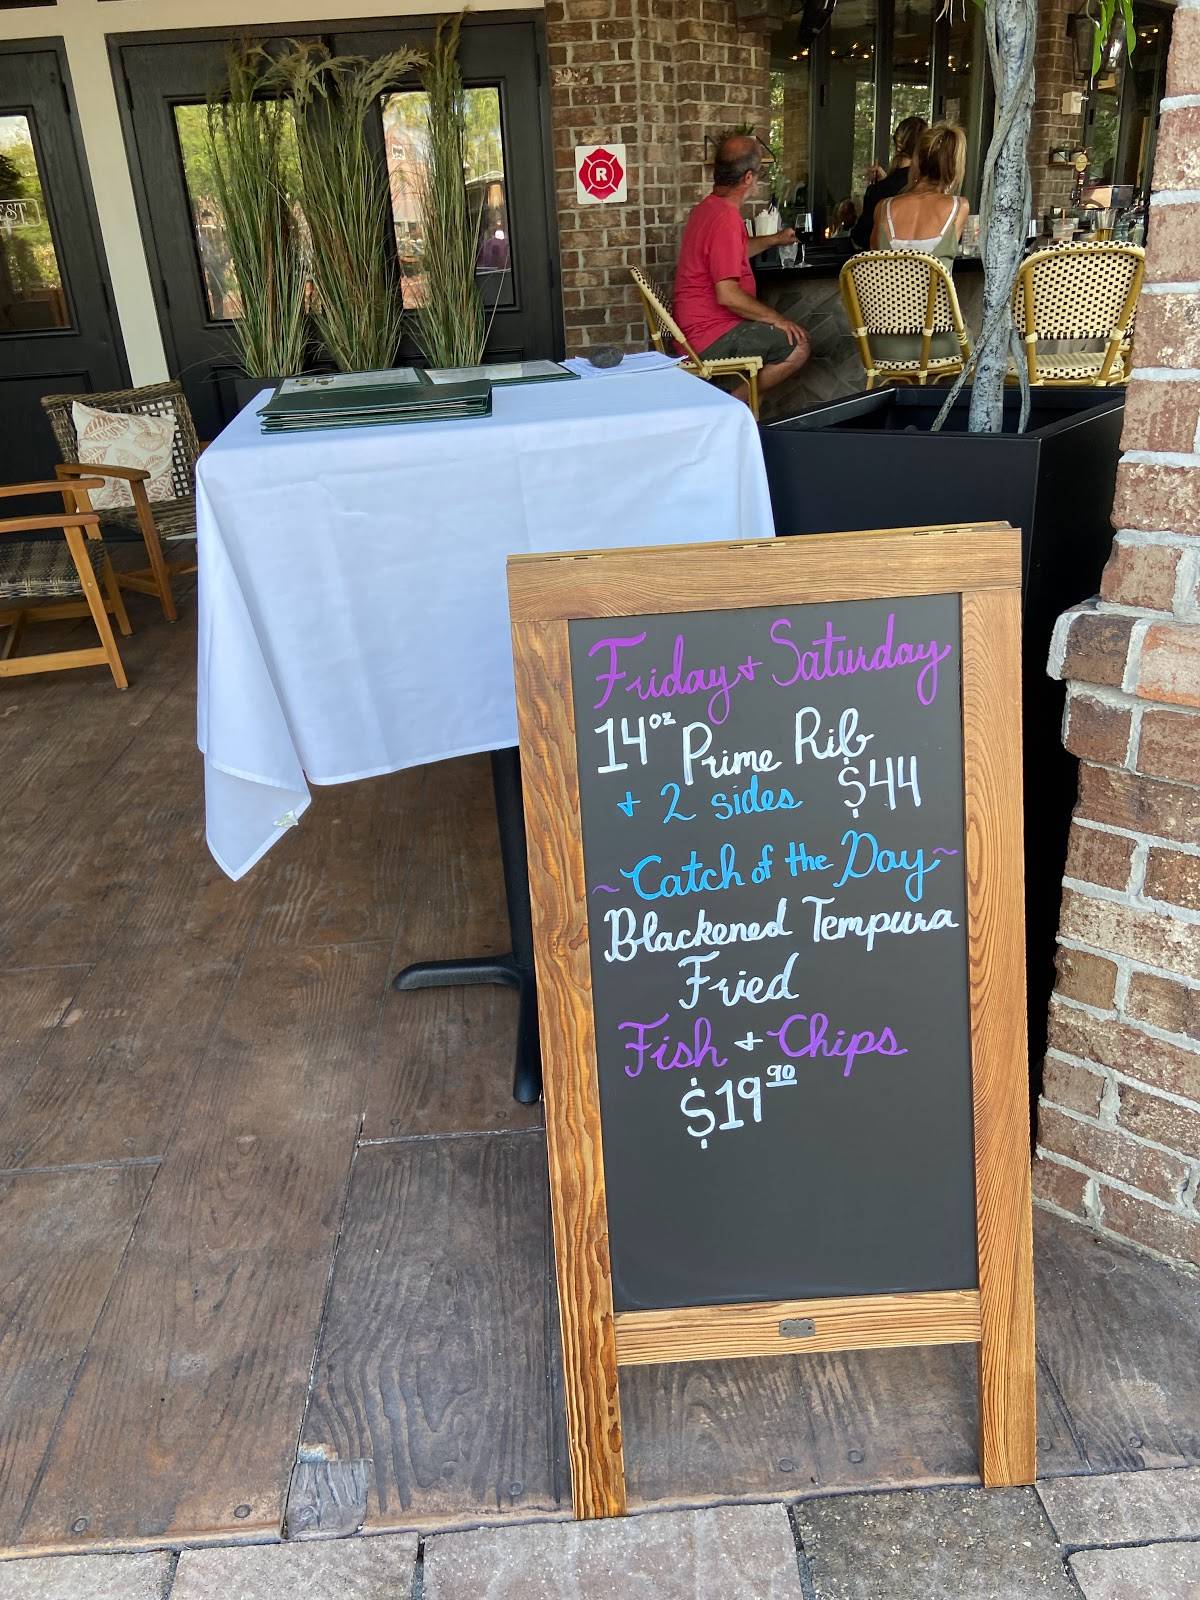 R
EST
Friday + Saturday
14oz Prime Rib
+ 2 sides $44
~Catch of the Day~
Blackened Tempura
Fried
Fish + Chips
$19 90